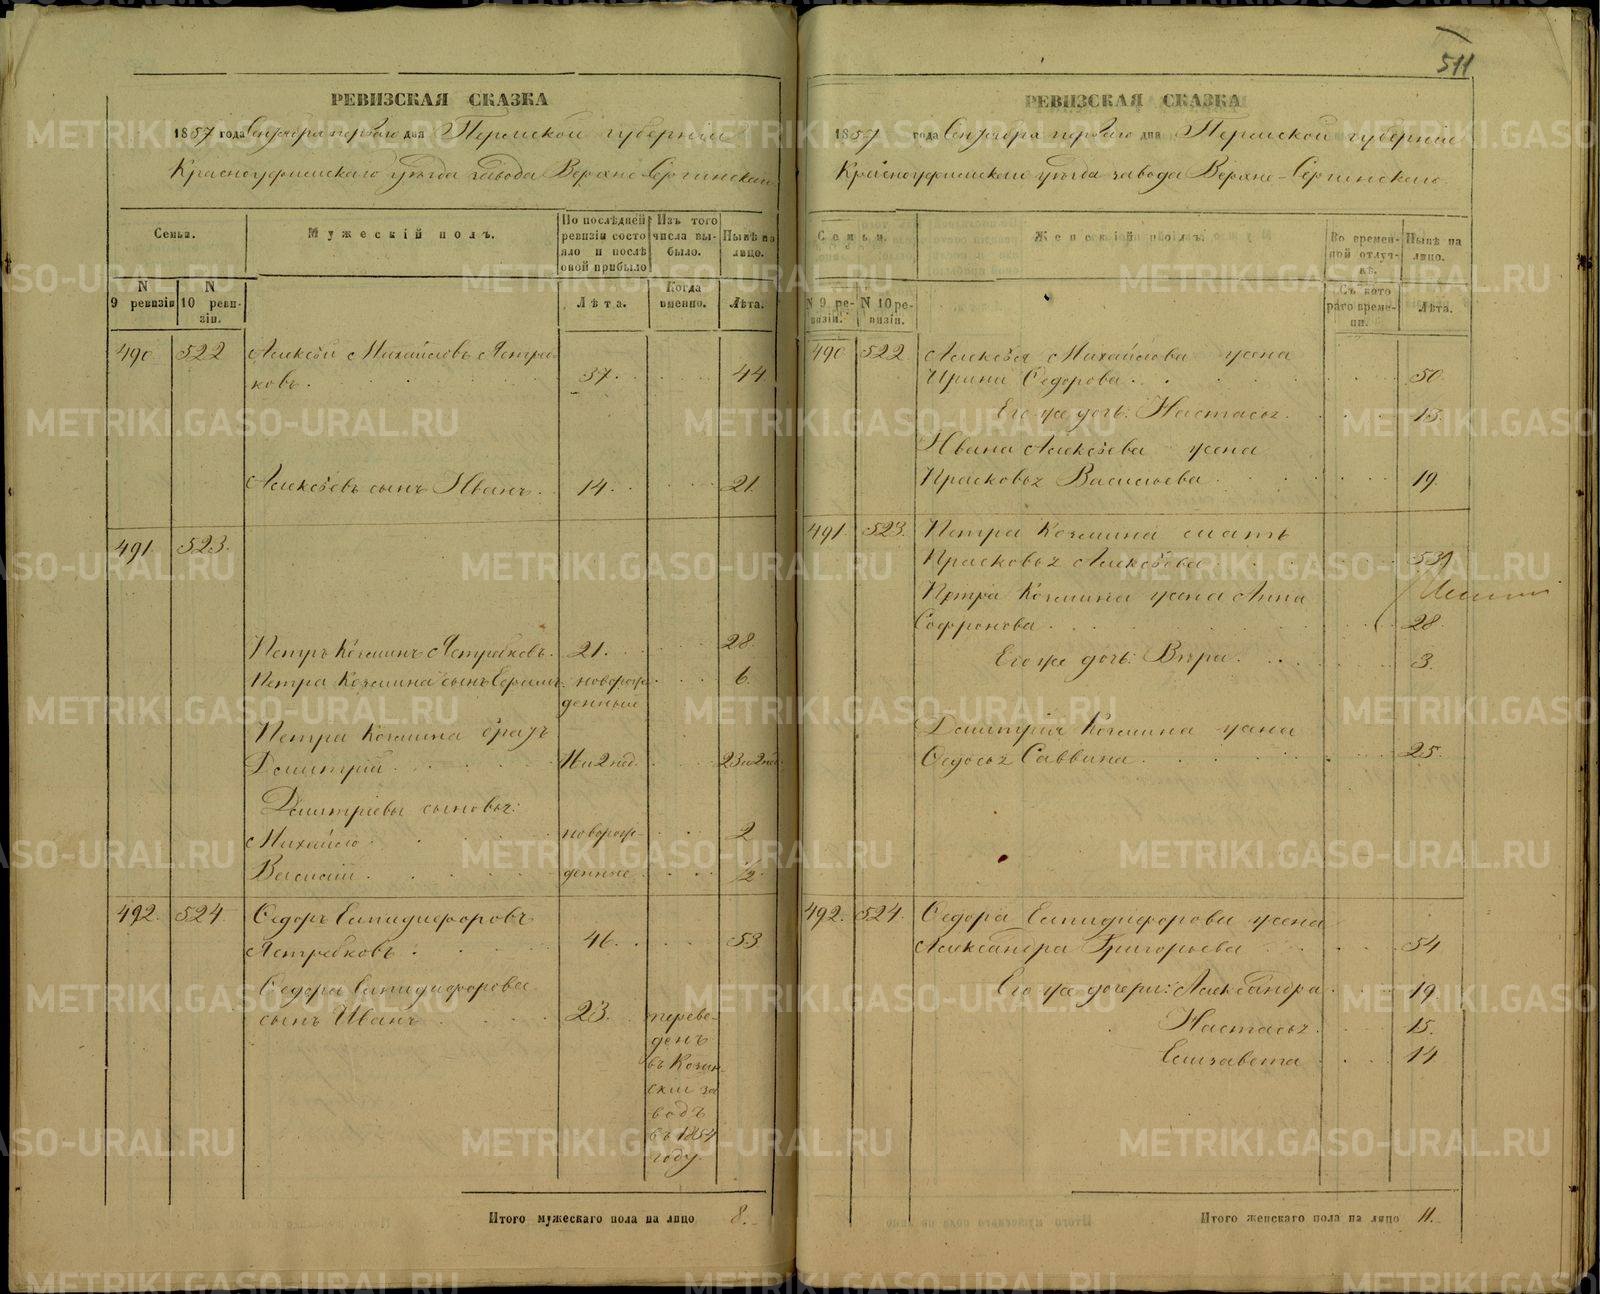 511
РЕВИЗСКАЯ СКАЗКА
1857 года Сентября первого дня Пермской губернии
Красноуфимского уезда завода Верхне-Сергинскаго
Семьи.
Мужескій полъ.
По последней ревизіи состояло и после оной прибыло
Изъ того числа выбыло.
Ныне на лицо.
N 9 ревизіи
N 10 ревизіи.
Лета.
Когда именно.
Лета.
490 522 Алексей Михайловъ Ястребковъ. 37. 44
Алексеевъ сынъ Иванъ. 14. 21.
491. 523.
Петръ Козминъ Ястребковъ. 21. 28.
Петра Козмина сынъ Ефимъ. новорожденный 6.
Петра Козмина братъ
Дмитрій 23 и 2 нед.
Дмитріевы сыновья:
Михайло новорож- 2
Василій. денные ½.
492. 524. Федоръ Елпидифоровъ
Ястребковъ. 46. 53.
Федора Елпидифорова
сынъ Иванъ 23. переведенъ въ заводъ въ 1854 году.
Итого мужескаго пола на лицо 8.
РЕВИЗСКАЯ СКАЗКА
1857 года Сентября первого дня Пермской губернии
Красноуфимского уезда завода Верхне-Сергинскаго
Семьи.
Женскій полъ.
Во временной отлучке.
Ныне на лицо.
N 9 ревизіи.
N 10 ревизіи.
Съ котораго времени.
Лета.
490 522 Алексея Михайлова жена
Ирина Федорова. 50.
Его же дочь: Настасья. 13.
Ивана Алексеева жена
Прасковья Васильева 19.
491. 523. Петра Козмина мать
Прасковья Алексеева 53
Петра Козмина жена Анна
Софронова 28
Его же дочь: Вера. 3.
Дмитрія Козмина жена
Федосья Саввина. 25.
492. 524. Федора Елпидифорова жена
Александра Григорьева 54
Его же дочери: Александра 19.
Настасья. 15.
Елизавета 14
Итого женскаго пола на лицо 11.
METRIKI.GASO-URAL.RU